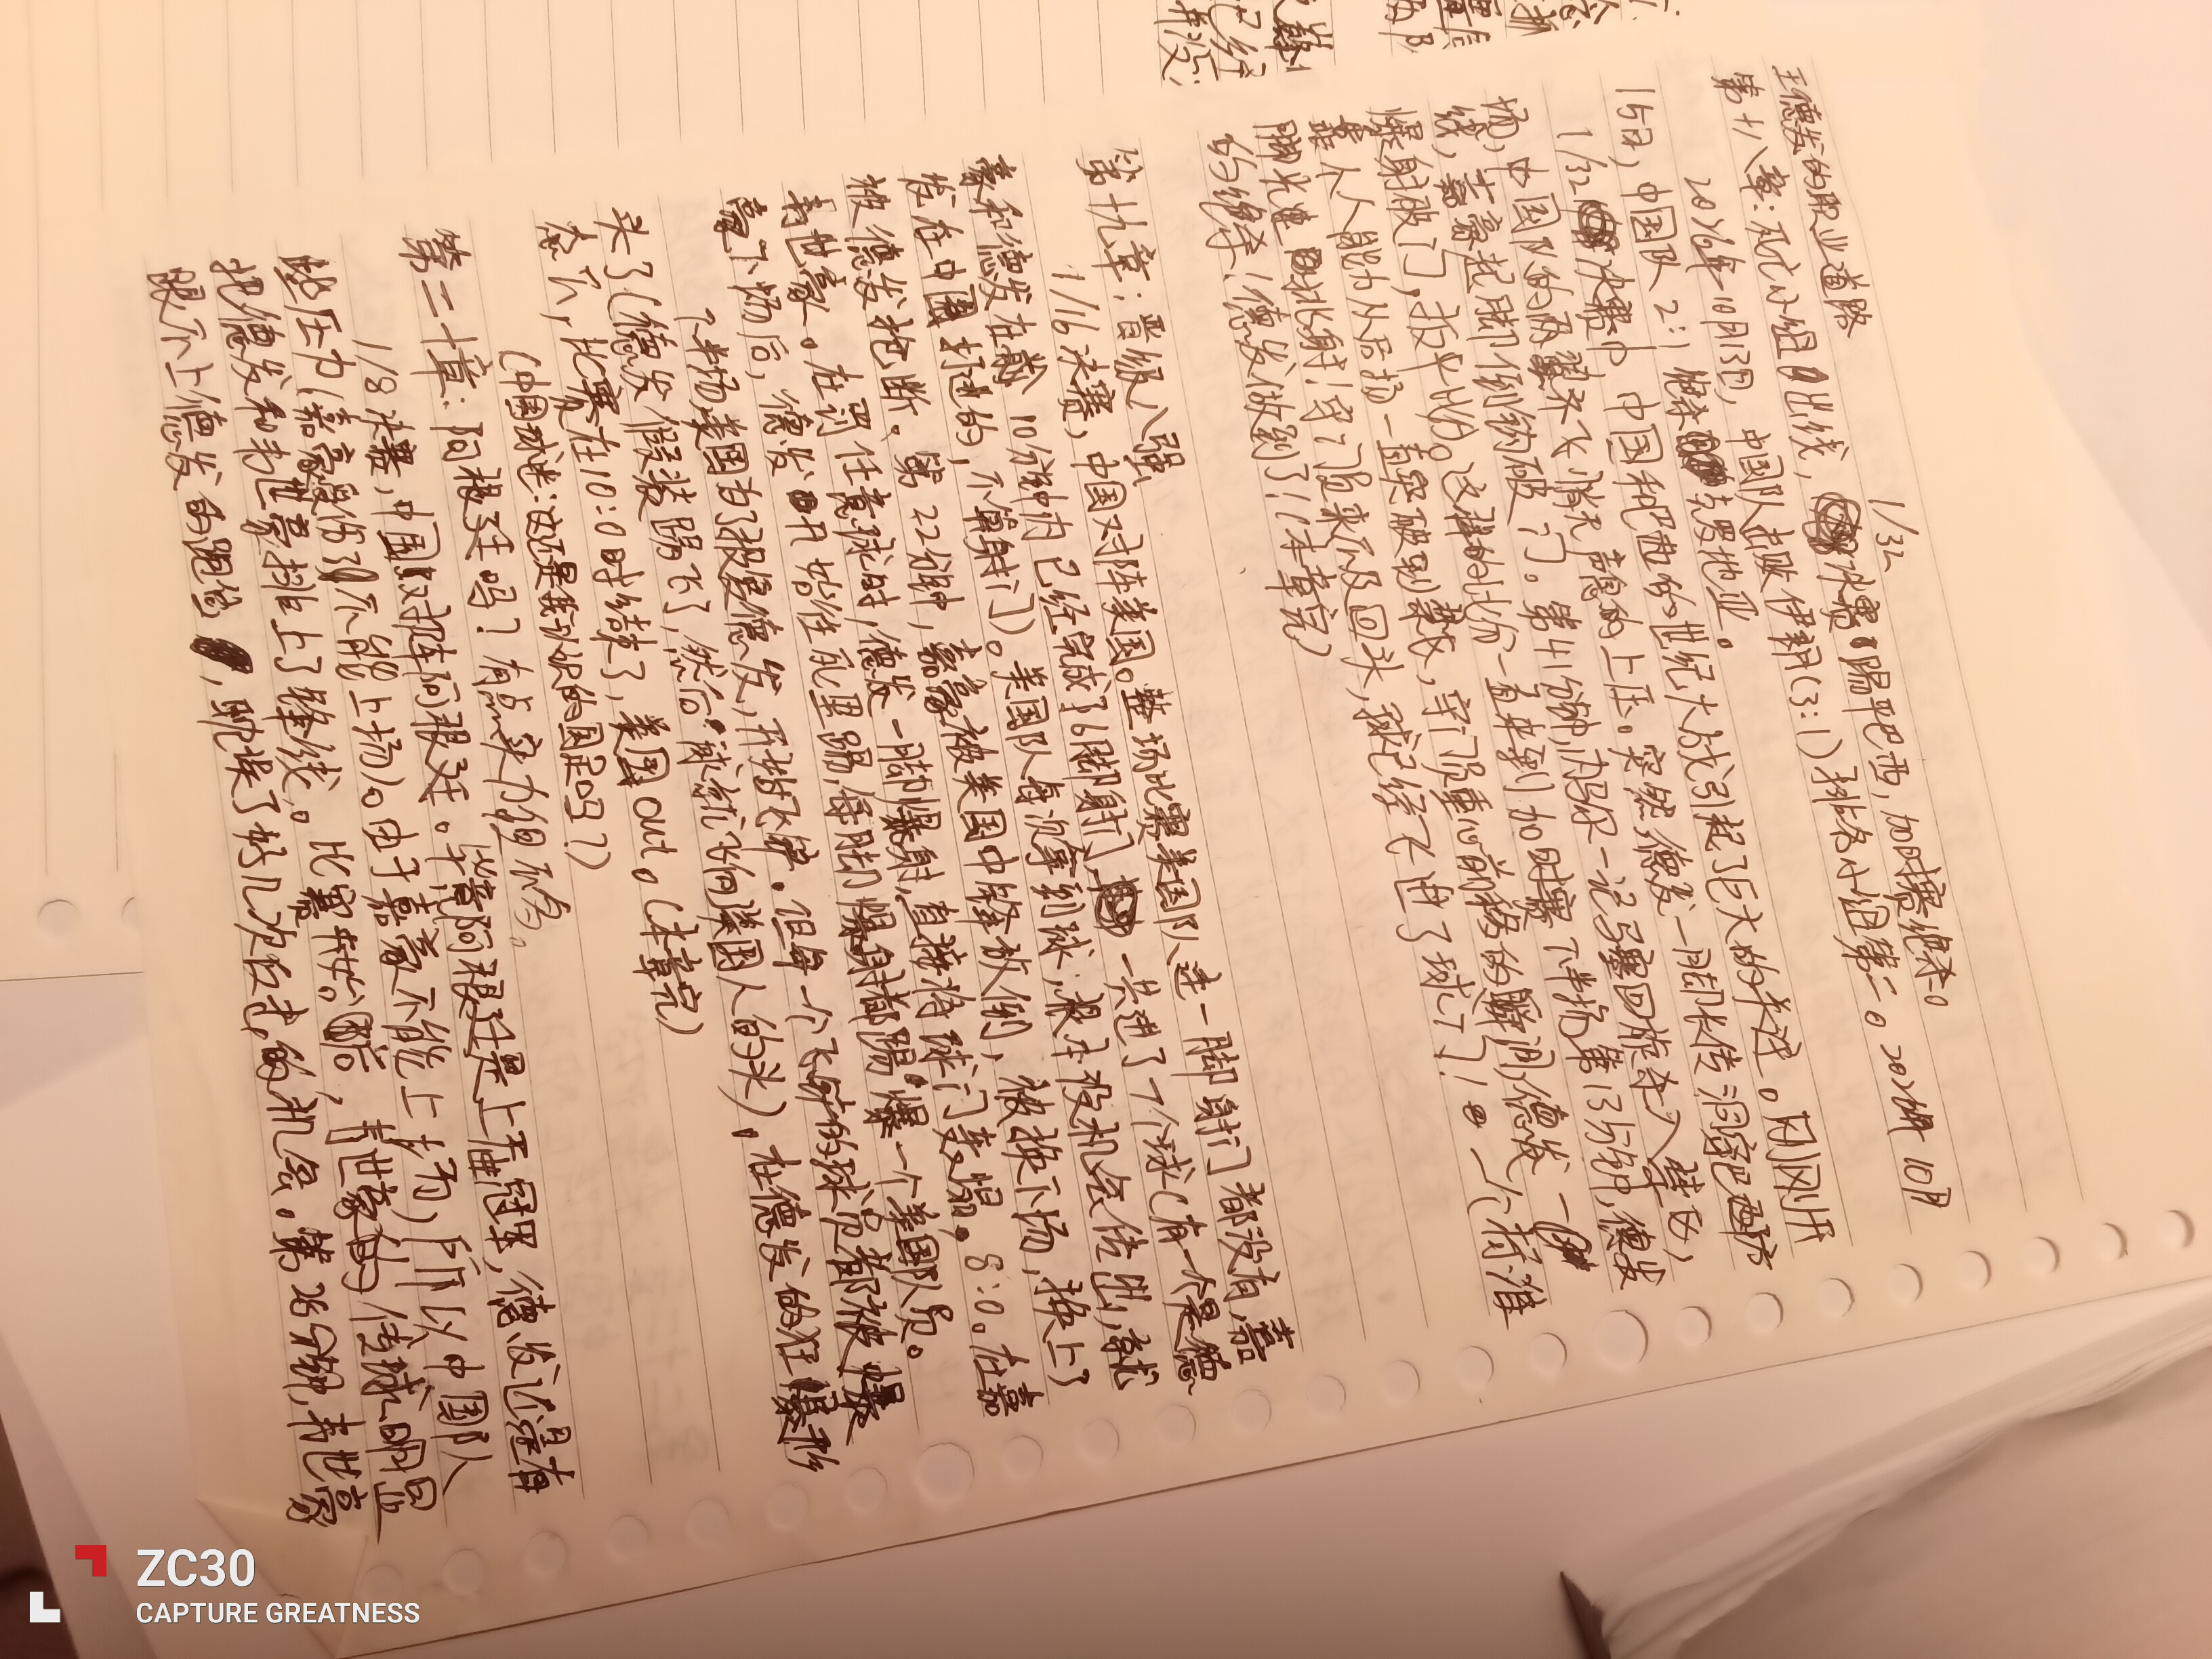 王德发的职业道路
1/32
第十八章:死亡小组出线,决赛踢巴西,加时赛绝杀。
2026年10月13日,中国队击败伊朗(3:1)排名小组第二。2026年10月
15日,中国队2:1绝杀克罗地亚。
1/32决赛中 中国和巴西的世纪大战引起了巨大的关注。刚刚开
场,中国队的两翼齐飞悄无声息的上压。突然德发一脚长传洞穿巴西防
线,嘉豪起脚倒钩破门。第41分钟,内马尔一记马赛回旋杀入禁区,
爆射破门,扳平比分。这样的比分一直来到加时赛下半场第13分钟,德发
靠人人能力从后场一直突破到禁区,守门员重心前移的瞬间,德发一
脚光速此射!守门员来不及回头,球已经飞进了球门!一个精准
的绝杀!德发做到了!(本章完)
第十九章:晋级八强
1/16决赛,中国对阵美国。整场比赛美国队连一脚射门都没有,嘉
豪和德发在前10分钟内已经完成了6脚射门,一共进了7个球(有一个是德
发在中圈打进的,不算射门)。美国队每次拿到球,根本没机会传出,就
被德发抢断。第22分钟,嘉豪被美国中锋放倒,被换下场,换上了
韦世豪。在罚任意球时,德发一脚爆射,直接将球门变塌。8:0。在嘉
豪下场后,德发开始往死里踢,每脚爆射都踢“爆”一个美国队员。
下半场美国为了报复德发,开始飞铲。但每一个飞铲的球员都被“爆
头了(德发假装踢飞了,然后球就飞向美国人的头),在德发的狂爆形
态下,比赛在10:0时结束了,美国out。(本章完)
(中国球迷:这还是我认识的国足吗?)
第二十章:阿根廷吗?有点实力但不多。
1/8决赛,中国队对阵阿根廷。毕竟阿根廷是上届冠军,德发还是有
些压力(嘉豪受伤了不能上场)。由于嘉豪不能上场,所以中国队
把德发和韦世豪排上了锋线。比赛开始后,韦世豪的传球明显
跟不上德发的跑位,耽误了好几次反击的机会。第26分钟,韦世豪
ZC30
CAPTURE GREATNESS